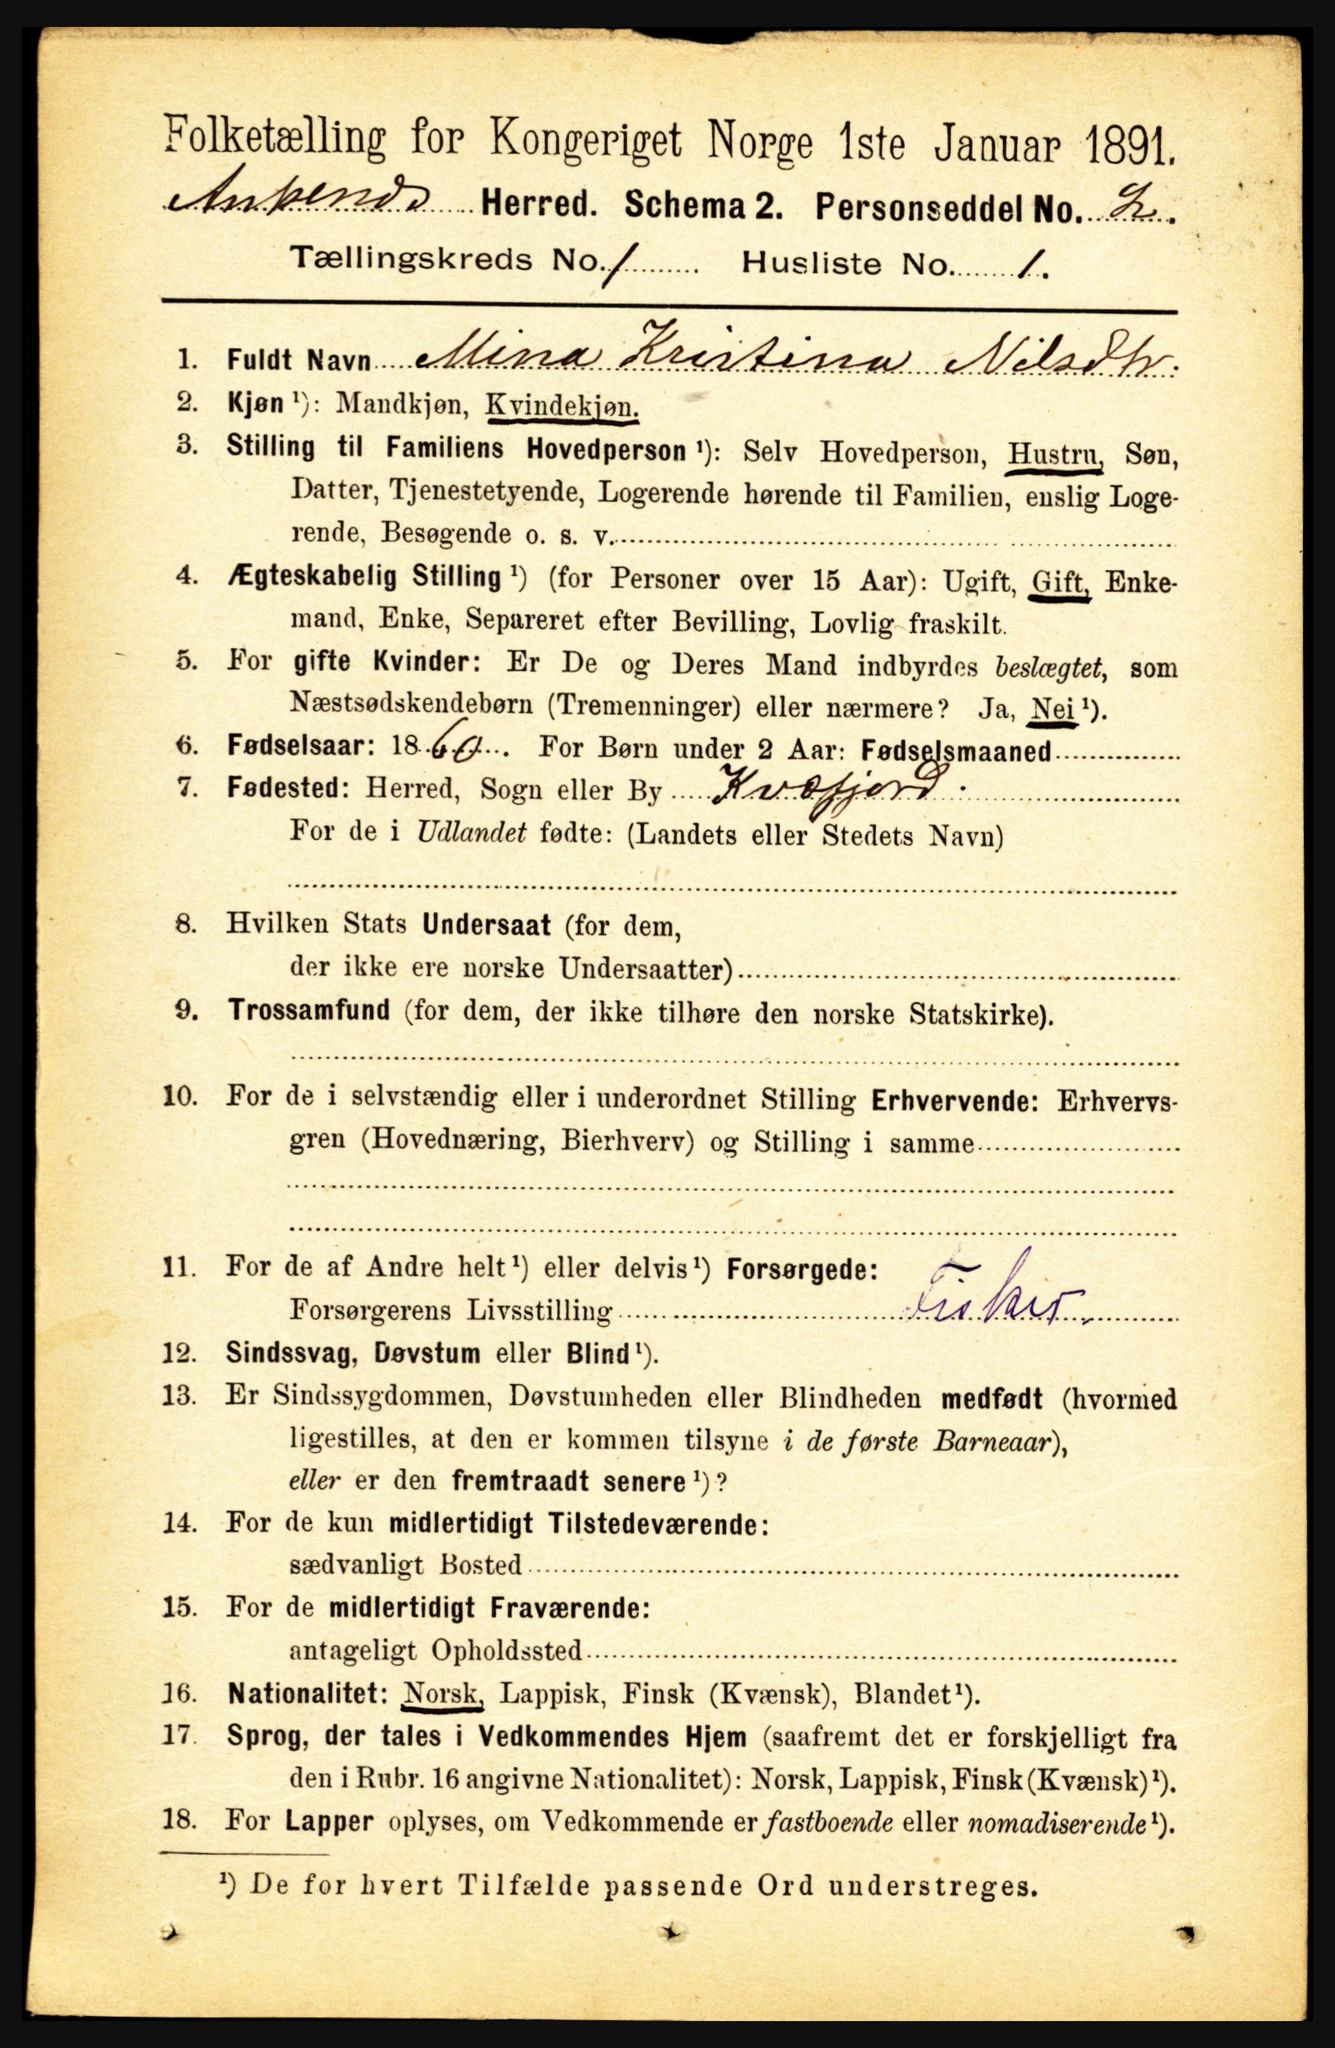 Folketælling for Kongeriget Norge 1ste Januar 1891.
Ankenes Herred. Schema 2. Personseddel No. 2.
Tællingskreds No. 1 Husliste No. 1.
1. Fuldt Navn Mina Kristina Nilsdtr.
2. Kjøn ¹): Mandkjøn, Kvindekjøn.
3. Stilling til Familiens Hovedperson ¹): Selv Hovedperson, Hustru, Søn,
Datter, Tjenestetyende, Logerende hørende til Familien, enslig Loge-
rende, Besøgende o. s. v.
4. Ægteskabelig Stilling ¹) (for Personer over 15 Aar): Ugift, Gift, Enke-
mand, Enke, Separeret efter Bevilling, Lovlig fraskilt.
5. For gifte Kvinder: Er De og Deres Mand indbyrdes beslægtet, som
Næstsødskendebørn (Tremenninger) eller nærmere? Ja, Nei ¹).
6. Fødselsaar: 1860. For Børn under 2 Aar: Fødselsmaaned
7. Fødested: Herred, Sogn eller By Kvæfjord.
For de i Udlandet fødte: (Landets eller Stedets Navn)
8. Hvilken Stats Undersaat (for dem,
der ikke ere norske Undersaatter)
9. Trossamfund (for dem, der ikke tilhøre den norske Statskirke).
10. For de i selvstændig eller i underordnet Stilling Erhvervende: Erhvervs-
gren (Hovednæring, Bierhverv) og Stilling i samme
11. For de af Andre helt ¹) eller delvis ¹) Forsørgede:
Forsørgerens Livsstilling Fisker.
12. Sindssvag, Døvstum eller Blind ¹).
13. Er Sindssygdommen, Døvstumheden eller Blindheden medfødt (hvormed
ligestilles, at den er kommen tilsyne i de første Barneaar),
eller er den fremtraadt senere ¹)?
14. For de kun midlertidigt Tilstedeværende:
sædvanligt Bosted
15. For de midlertidigt Fraværende:
antageligt Opholdssted
16. Nationalitet: Norsk, Lappisk, Finsk (Kvænsk), Blandet ¹).
17. Sprog, der tales i Vedkommendes Hjem (saafremt det er forskjelligt fra
den i Rubr. 16 angivne Nationalitet): Norsk, Lappisk, Finsk (Kvænsk) ¹).
18. For Lapper oplyses, om Vedkommende er fastboende eller nomadiserende ¹).
¹) De for hvert Tilfælde passende Ord understreges.